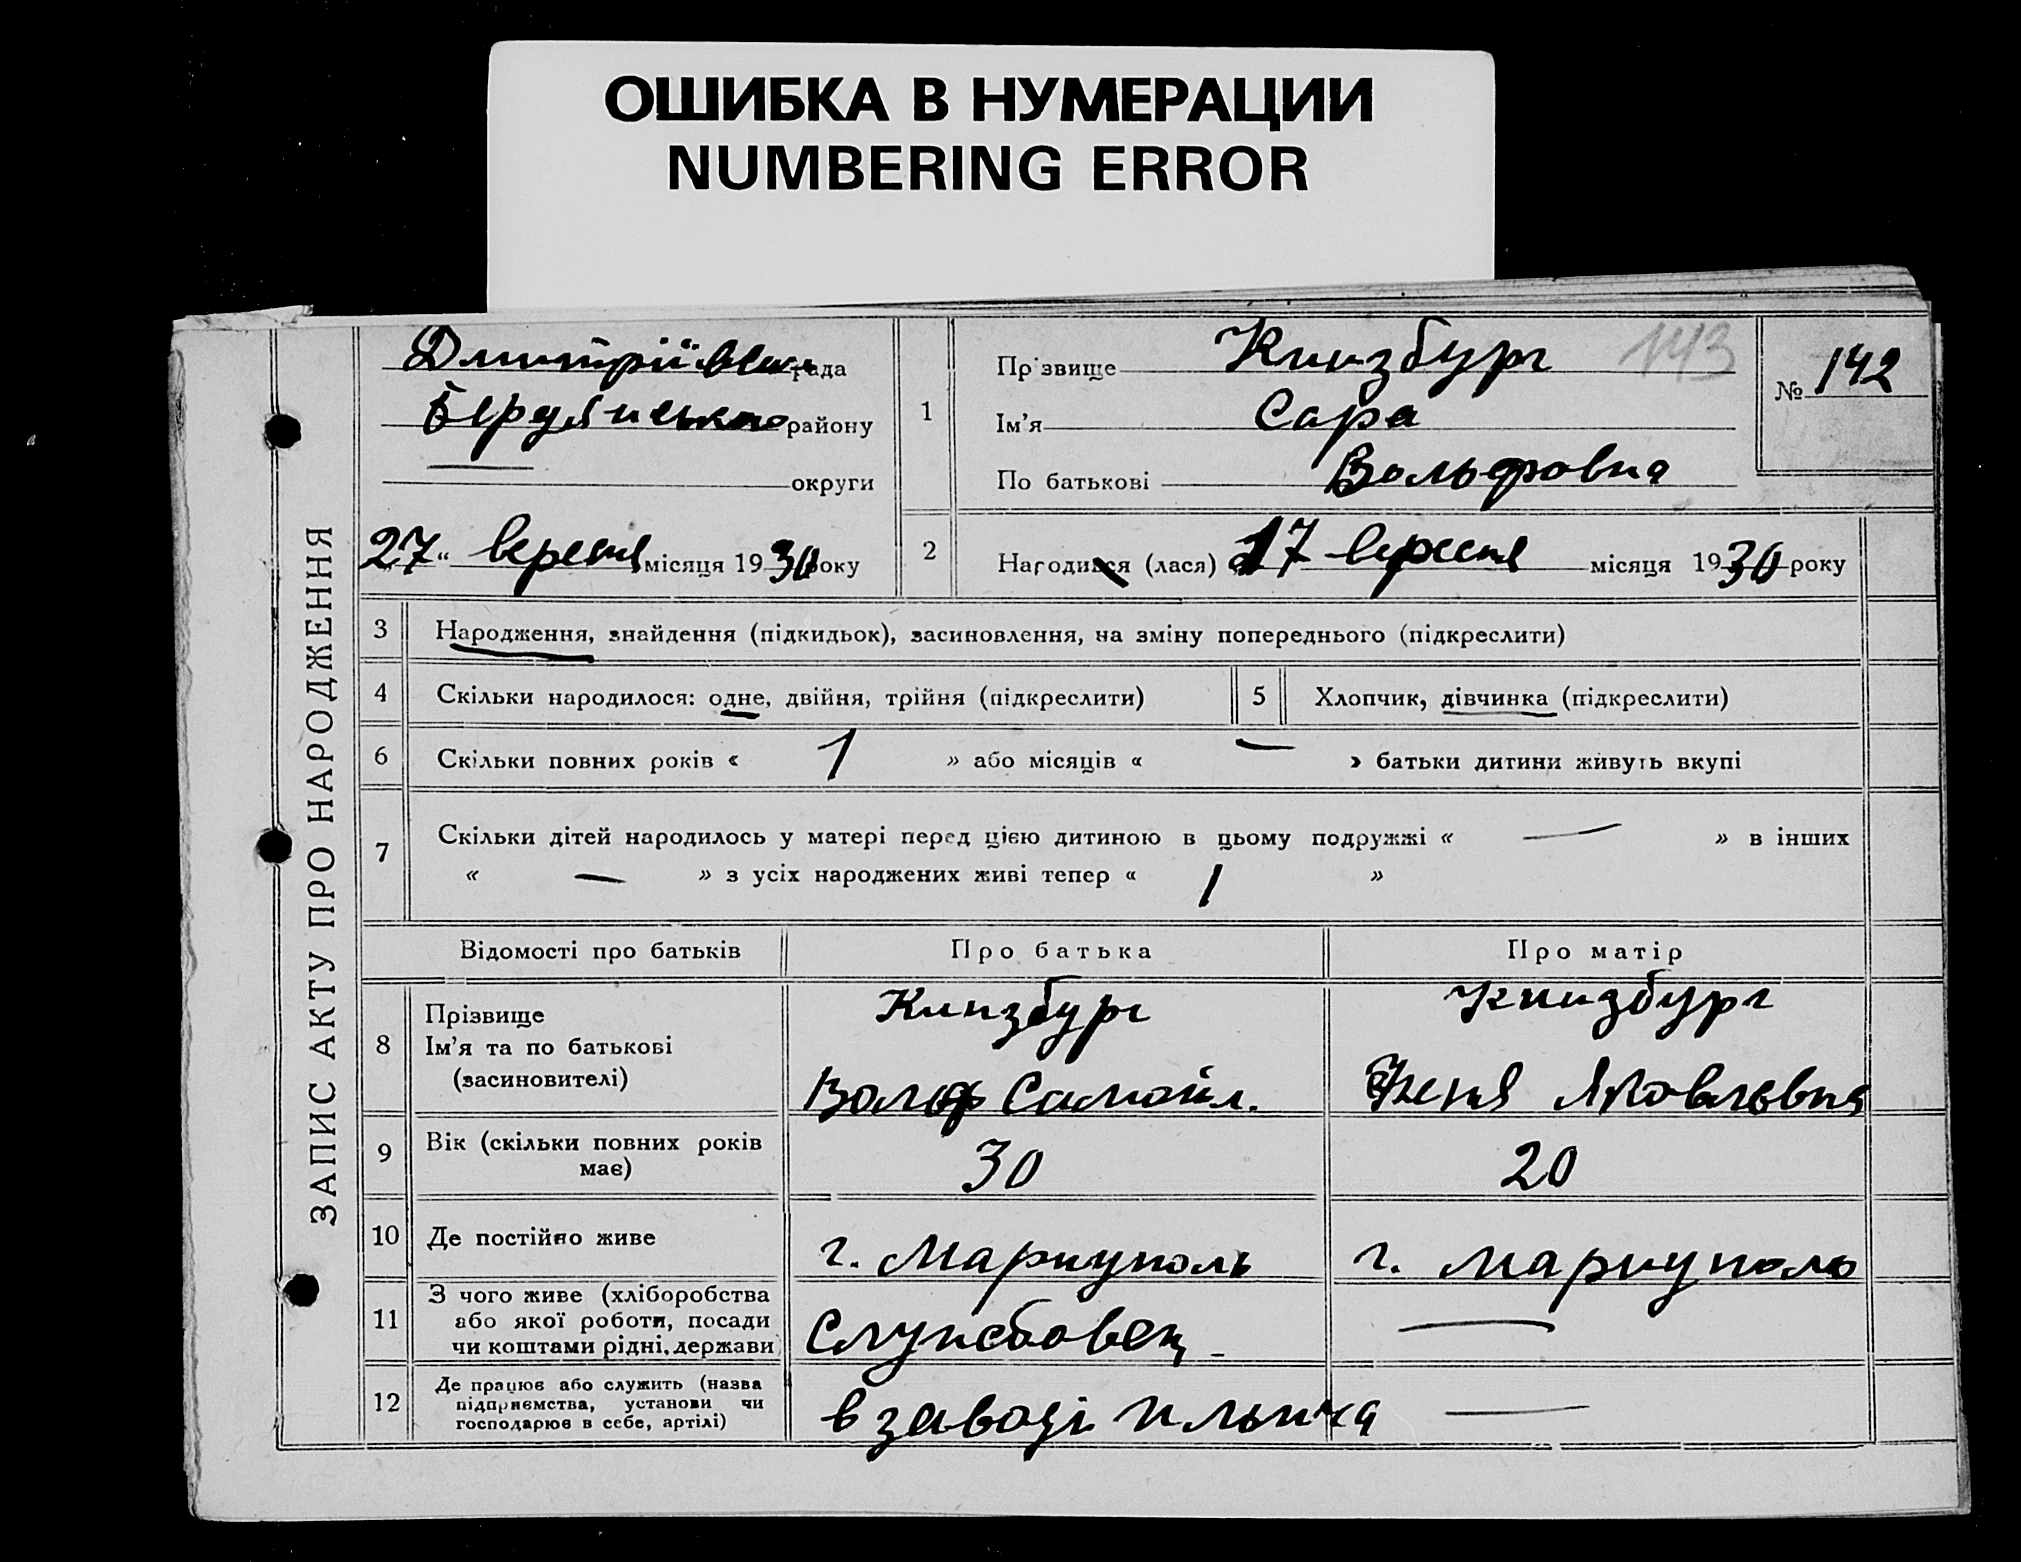 ОШИБКА В НУМЕРАЦИИ
NUMBERING ERROR
ЗАПИС АКТУ ПРО НАРОДЖЕННЯ
рада
Бердянського району
округи
27 " вересня місяця 1930 року
1
Прізвище Кинзбург 143
Ім'я Сара
По батькові Вольфовна
№ 142
2
Народився (лася) 17 вересня місяця 1930 року
3 Народження, знайдення (підкидьок), засиновлення, на зміну попереднього (підкреслити)
4 Скільки народилося: одне, двійня, трійня (підкреслити)
5 Хлопчик, дівчинка (підкреслити)
6 Скільки повних років « 1 » або місяців « — » батьки дитини живуть вкупі
7 Скільки дітей народилось у матері перед цією дитиною в цьому подружжі « — » в інших
« — » з усіх народжених живі тепер « 1 »
Відомості про батьків Про батька Про матір
8 Прізвище
Ім'я та по батькові
(засиновителі)
Кинзбург
Вольф Самойл.
Кинзбург
Женя Яковлевна
9 Вік (скільки повних років
має)
30
20
10 Де постійно живе г. Мариуполь г. Мариуполь
11 З чого живе (хліборобства
або якої роботи, посади
чи коштами рідні, держави
Службовец
—
12 Де працює або служить (назва
підприємства, установи чи
господарює в себе, артілі)
в заводі Ильича
—